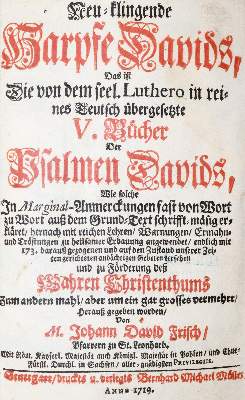 Neu-klingende
Harpfe Davids,
Das ist
Die von dem seel. Luthero in rei-
nes Teutsch übergesetzte
V. Bücher
Der
Psalmen Davids,
Wie solche
In Marginal-Anmerckungen fast von Wort
zu Wort auß dem Grund-Text schrifft-mäßig er-
kläret/ hernach mit reichen Lehren/ Warnungen/ Ermahn-
und Tröstungen zu heilsamer Erbauung angewendet/ endlich mit
173. darauß gezogenen und auf den Zustand unserer Zei-
ten gerichteten andächtigen Gebetern versehen
und zu Förderung deß
Wahren Christenthums
Zum andern mahl/ aber um ein gar grosses vermehrt/
Herauß gegeben worden/
Von
M. Johann David Frisch/
Pfarrern zu St. Leonhard.
Mit Röm. Kayserl. Majestät auch Königl. Majestät in Pohlen/ und Chur-
Fürstl. Durchl. in Sachsen/ allergnädigsten PRIVILEGIIS.
Stuttgart/ druckts u. verlegts Bernhard Michael Müller.
Anno 1719.